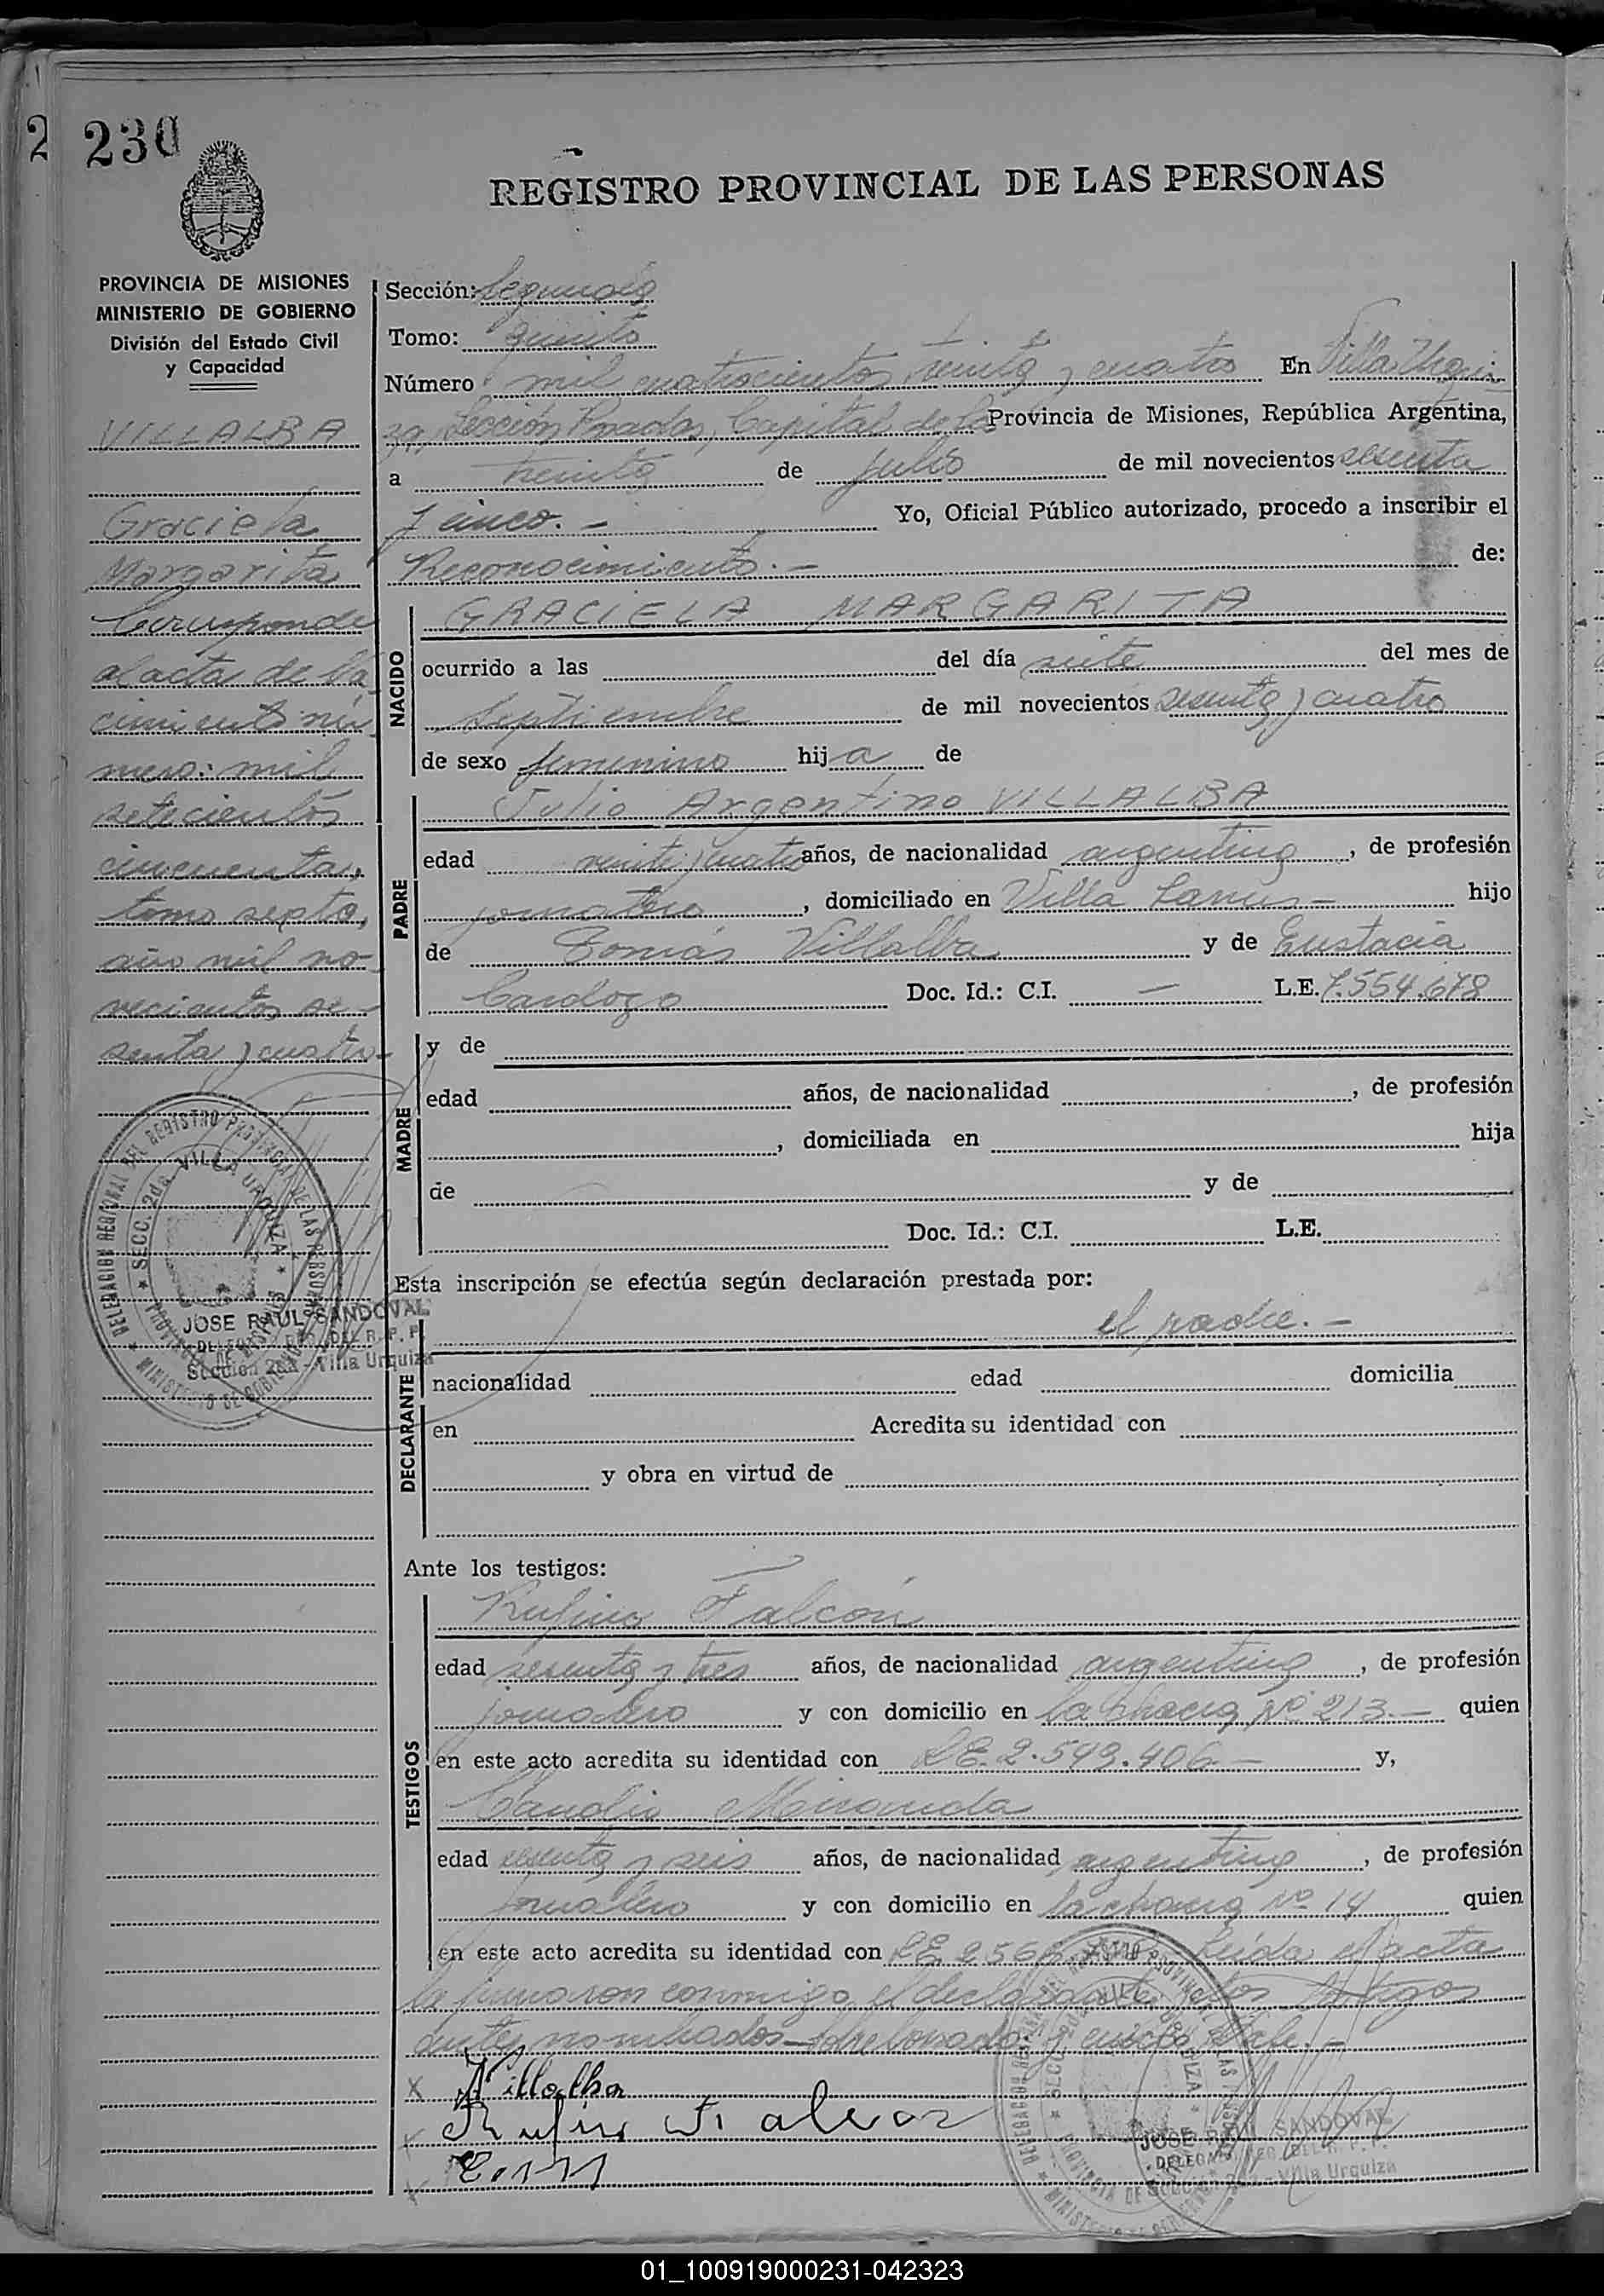 230
REGISTRO PROVINCIAL DE LAS PERSONAS
PROVINCIA DE MISIONES
MINISTERIO DE GOBIERNO
División del Estado Civil
y Capacidad
VILLALBA
Graciela
Margarita
Corresponde
al acta de na
cimiento nú
mero: mil
setecientos
cincuenta,
tomo septo,
año mil no
vecientos se
senta y cuatro
Sección: Segunda
Tomo: quinto
Número mil cuatrocientos treinta y cuatro En Villa Urqui
za, Sección Posadas, Capital de la Provincia de Misiones, República Argentina,
a treinta de julio de mil novecientos sesenta
y cinco. - Yo, Oficial Público autorizado, procedo a inscribir el
Reconocimiento. - de:
NACIDO
GRACIELA MARGARITA
ocurrido a las del día siete del mes de
septiembre de mil novecientos sesenta y cuatro
de sexo femenino hija de
PADRE
Julio Argentino VILLALBA
edad veinte y cuatro años, de nacionalidad argentino, de profesión
jornalero, domiciliado en Villa Lanus - hijo
de Tomás Villalba y de Eustacia
Cardozo Doc. Id.: C.I. — L.E. 7.554.678
MADRE
y de
edad años, de nacionalidad , de profesión
, domiciliada en hija
de y de
Doc. Id.: C.I. L.E.
Esta inscripción se efectúa según declaración prestada por:
el padre. -
DECLARANTE
nacionalidad edad domicilia
en Acredita su identidad con
y obra en virtud de
Ante los testigos:
TESTIGOS
Rufino Falcón
edad sesenta y tres años, de nacionalidad argentino, de profesión
jornalero y con domicilio en la chacra Nº 213. - quien
en este acto acredita su identidad con L.E. 2.593.406 - y,
Claudio Miranda
edad sesenta y seis años, de nacionalidad argentino, de profesión
jornalero y con domicilio en la chacra Nº 14 quien
en este acto acredita su identidad con L.E. Leída el acta
la firmaron conmigo, el declarante y los testigos
antes nombrados - Sobreborrado: Vale. -
x Villalba
Rufino Falcon
DELEGACION REGIONAL DEL REGISTRO PROVINCIAL DE LAS PERSONAS
SECC. 2da. VILLA URQUIZA
MINISTERIO DE GOBIERNO
PROVINCIA DE MISIONES
JOSE RAUL SANDOVAL
DELEGADO REG. DEL R. P. P.
Sección 2da - Villa Urquiza
JOSE RAUL SANDOVAL
DELEGADO REG. DEL R. P. P.
Sección 2da - Villa Urquiza
01_100919000231-042323